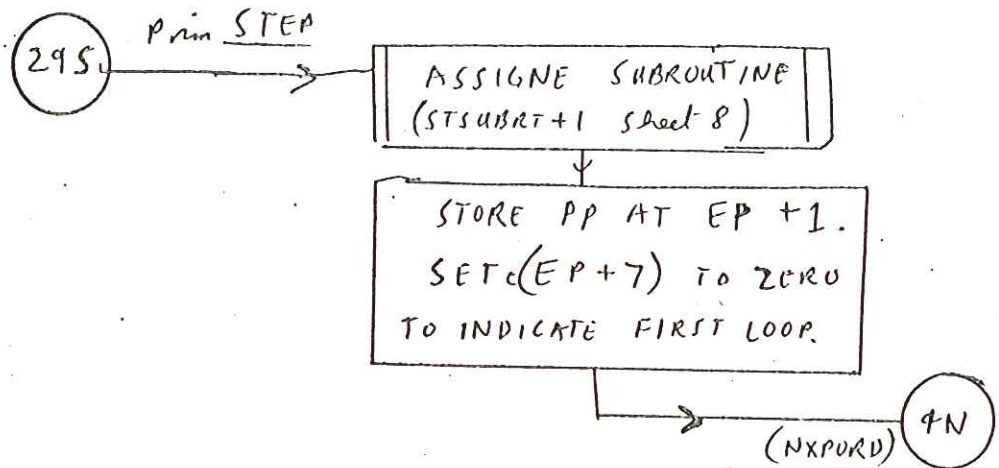 29S
Prim STEP
ASSIGNE SUBROUTINE
(STSUBRT+1 Sheet 8)
STORE PP AT EP +1.
SET c(EP+7) TO ZERO
TO INDICATE FIRST LOOP.
4N
(NXPORD)